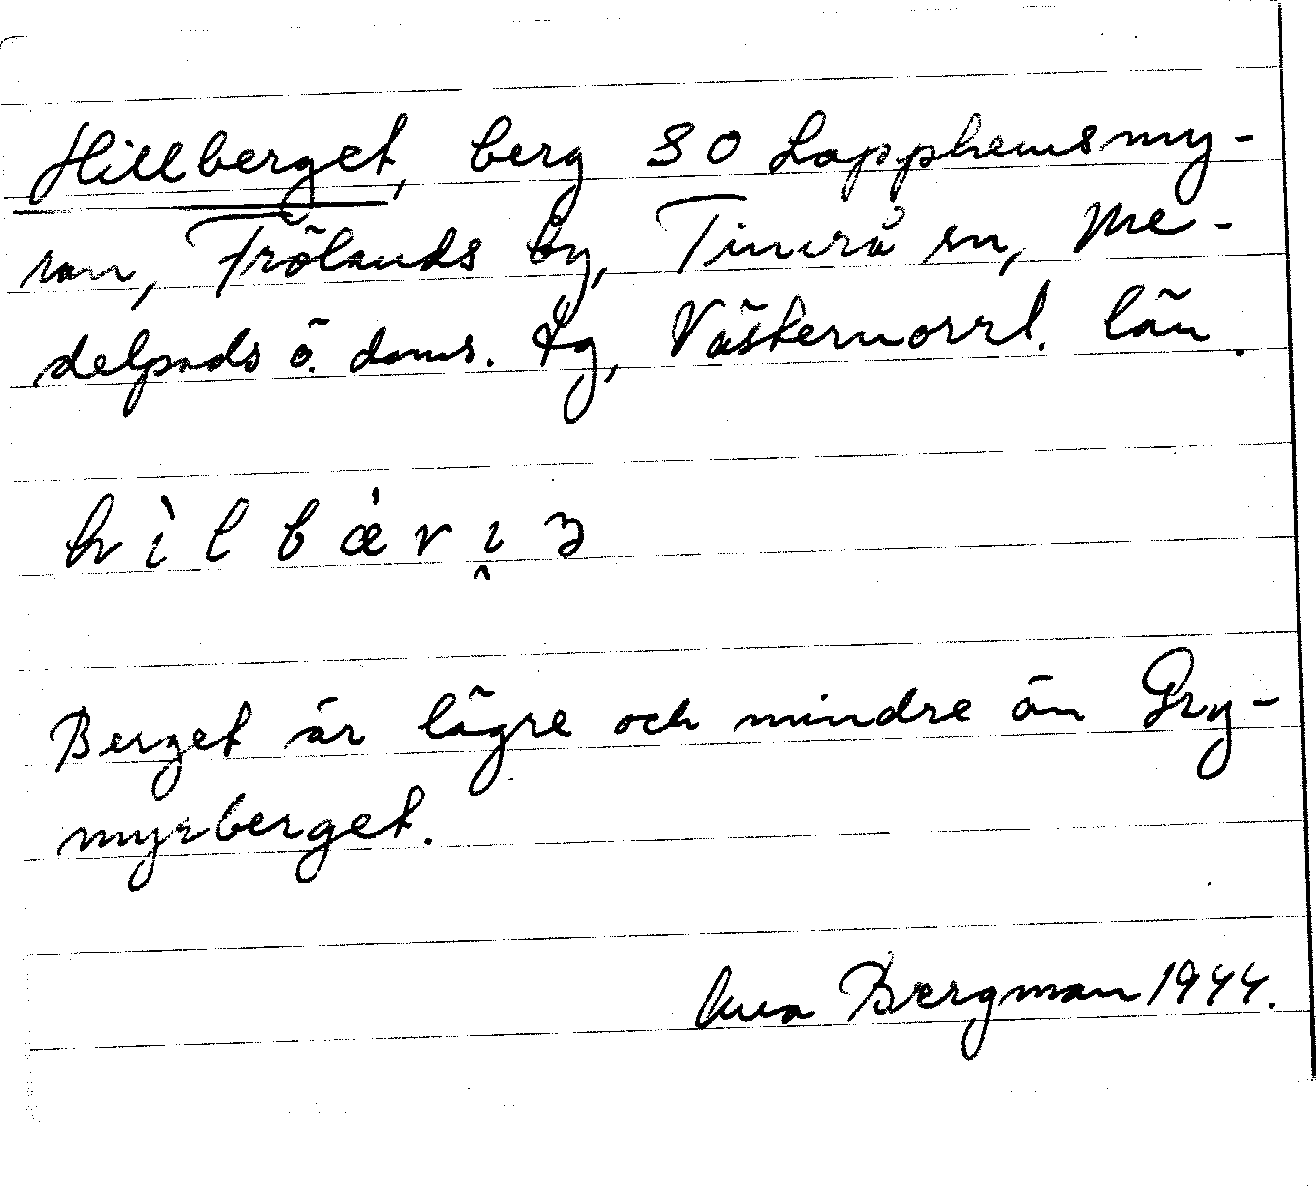 Hillberget, berg SO Lapphemsmy-
ran, Frölands by, Timrå sn, Me-
delpads ö. doms. tg, Västernorrl. län.
hìlbǽrı̭ʒ
Berget är lägre och mindre än Gry-
myrberget.
Bergman 1944.